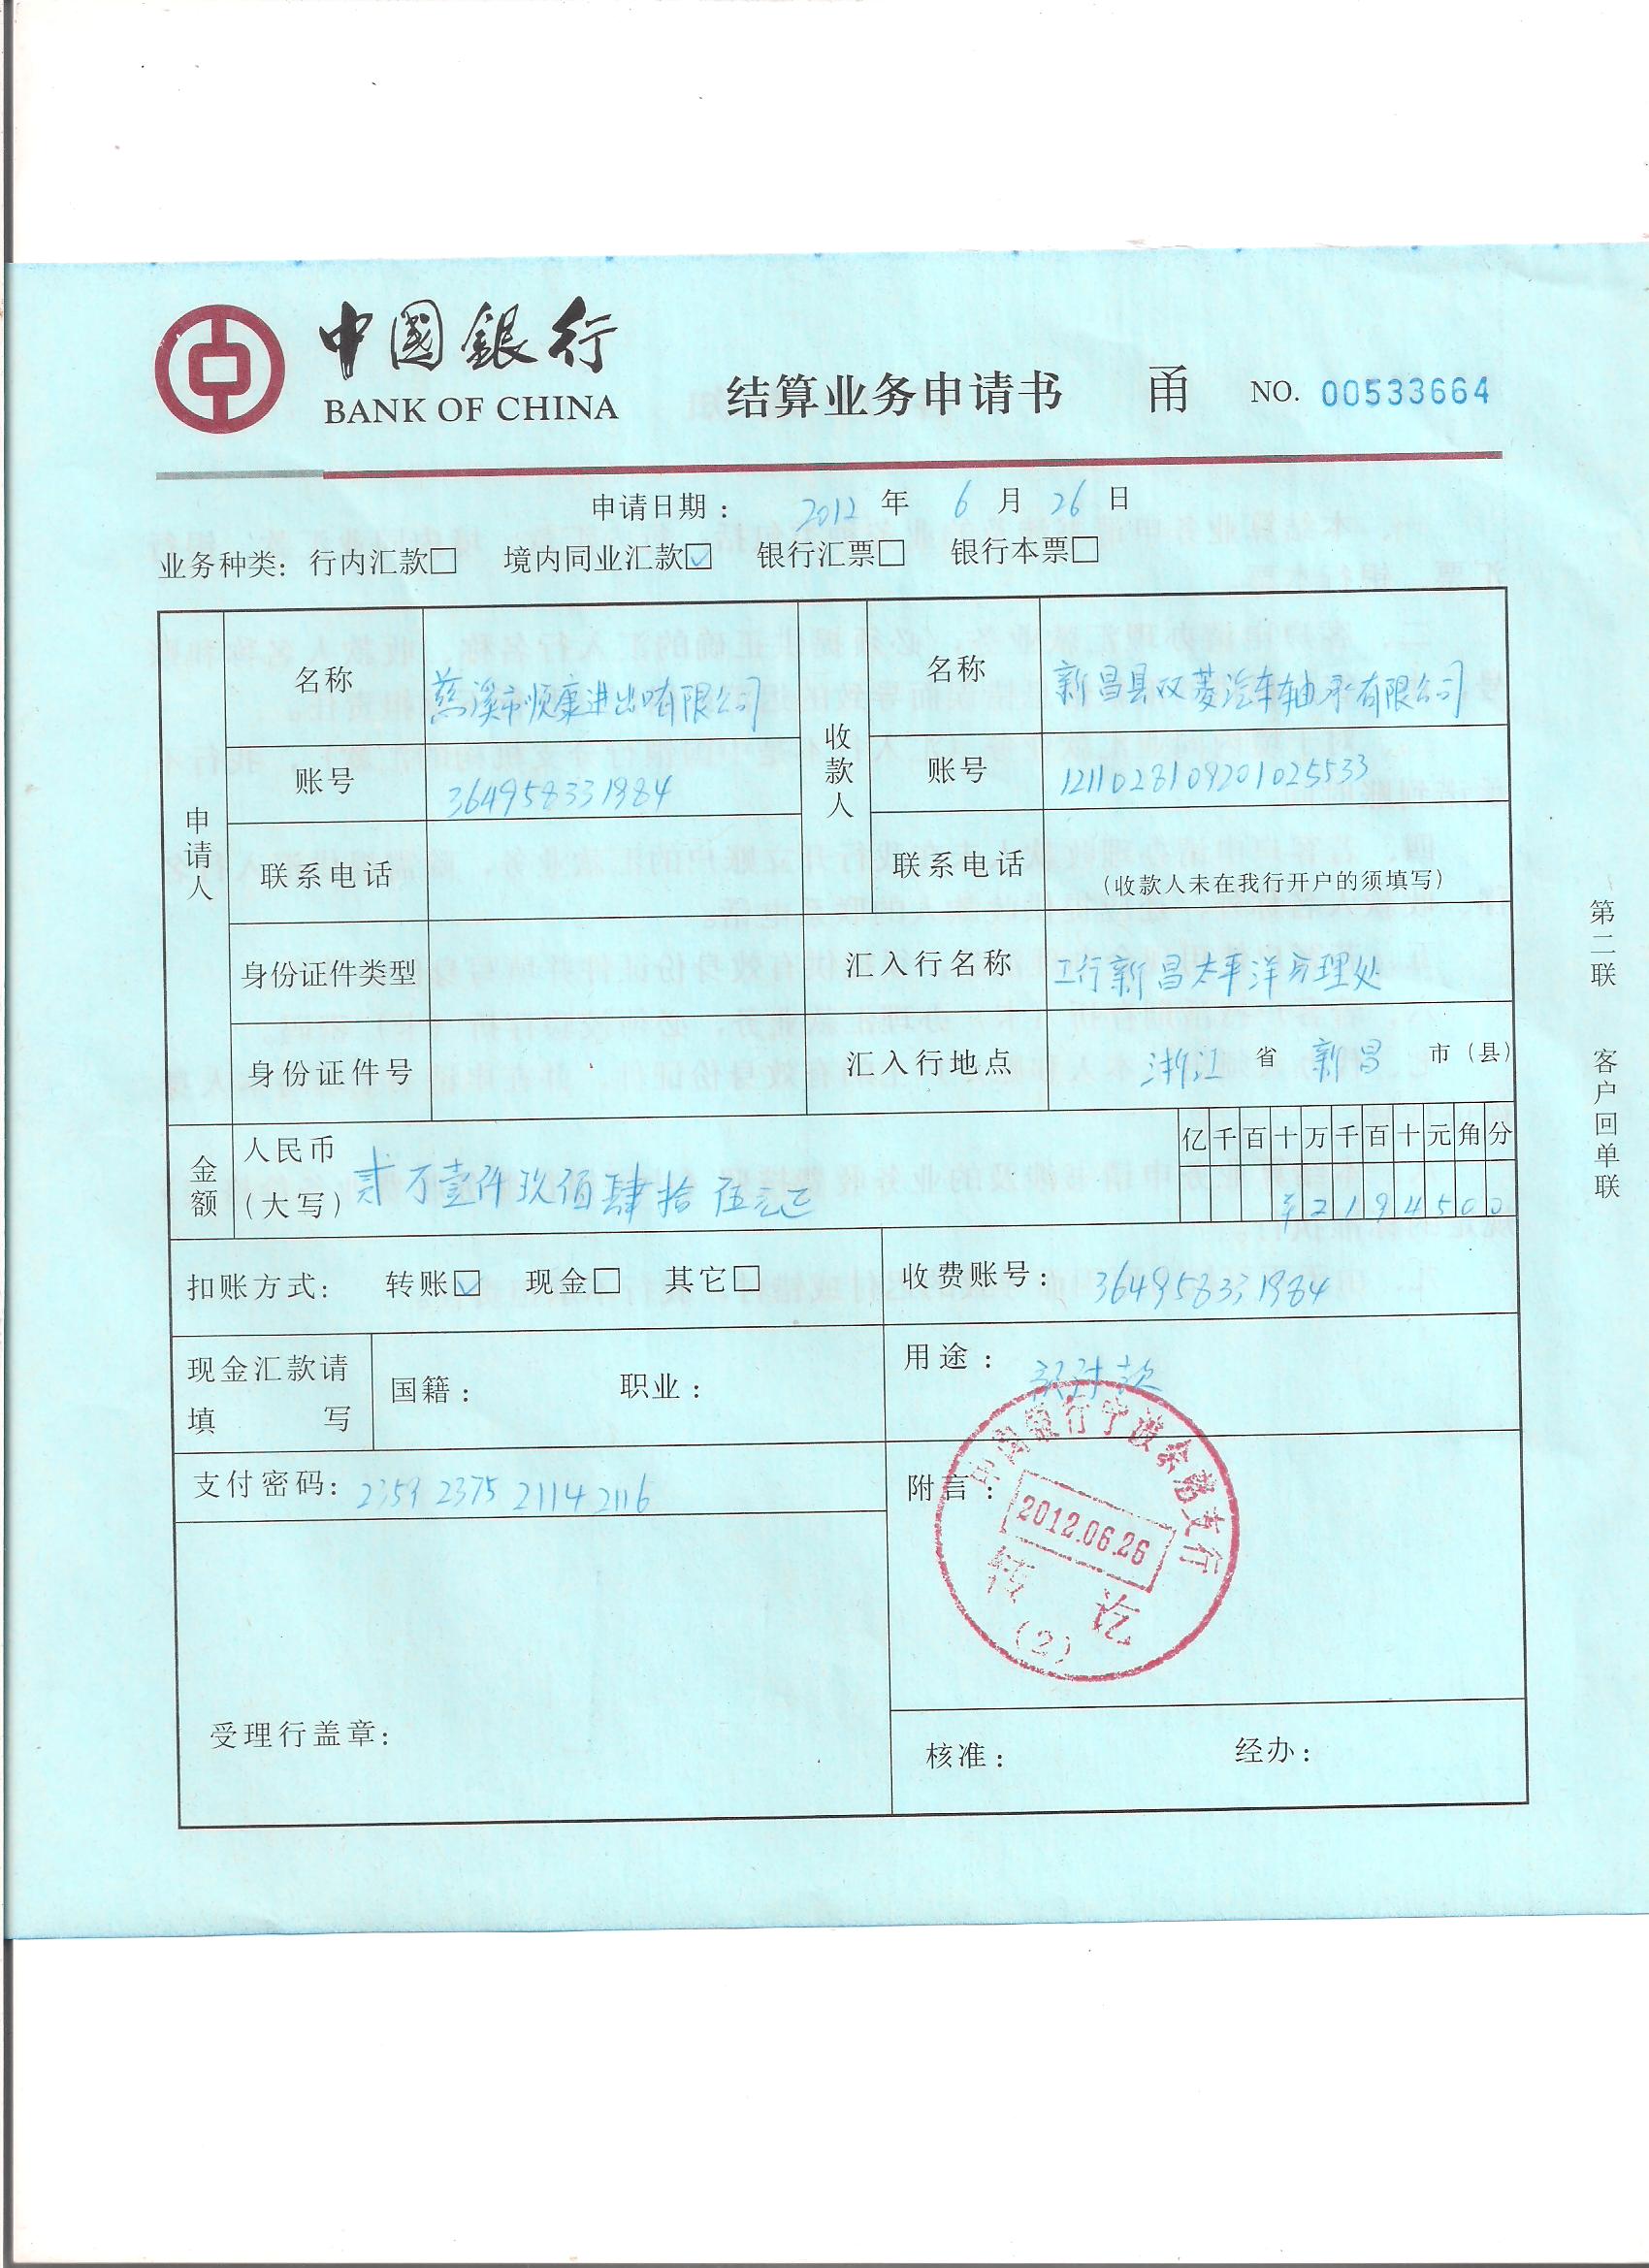 中國銀行
BANK OF CHINA
结算业务申请书 甬 NO. 00533664
申请日期: 2012 年 6 月 26 日
业务种类: 行内汇款□ 境内同业汇款☑ 银行汇票□ 银行本票□
申请人
名称 慈溪市顺康进出口有限公司
账号 364958331984
联系电话
身份证件类型
身份证件号
收款人
名称 新昌县双菱汽车轴承有限公司
账号 1211028109201025533
联系电话 (收款人未在我行开户的须填写)
汇入行名称 工行新昌太平洋分理处
汇入行地点 浙江 省 新昌 市(县)
金额 人民币(大写) 贰万壹仟玖佰肆拾伍元正
亿千百十万千百十元角分
¥2194500
扣账方式: 转账☑ 现金□ 其它□
收费账号: 364958331984
现金汇款请填写 国籍: 职业:
用途: 款
支付密码: 2359 2375 2114 2116
附言:
中国银行宁波余慈支行
2012.06.26
转讫
(2)
受理行盖章:
核准: 经办:
第二联 客户回单联